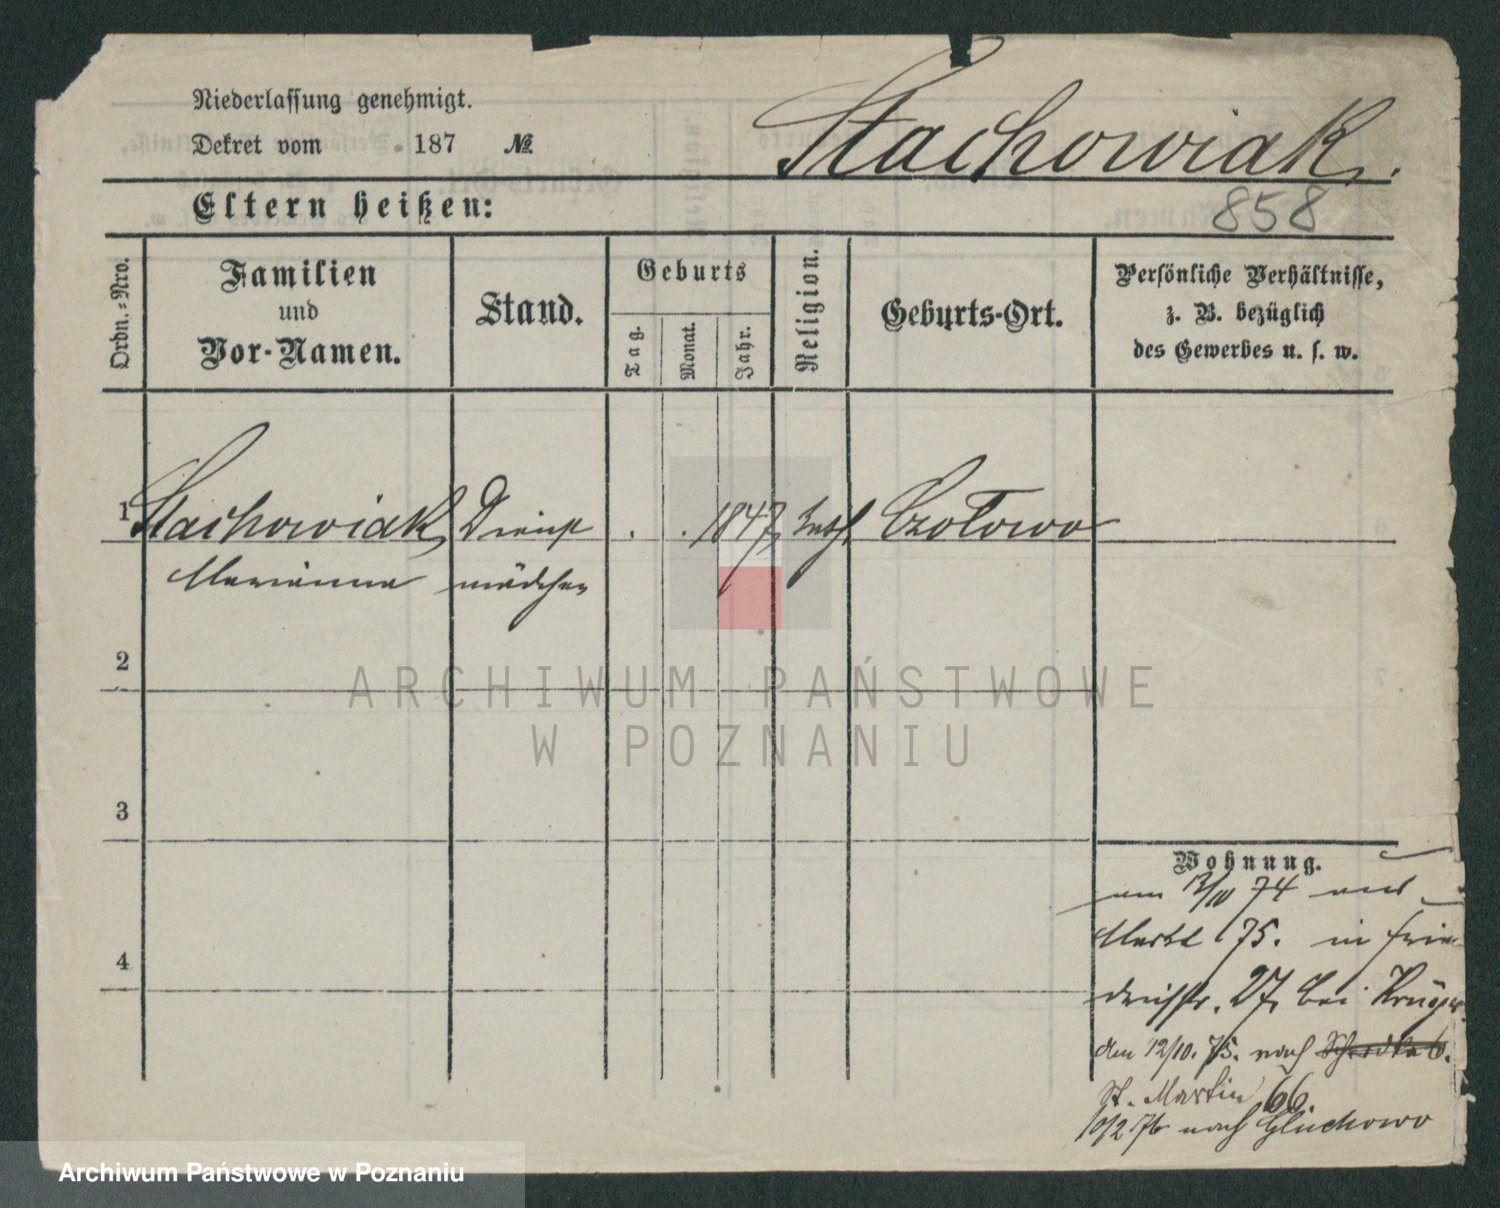 Niederlassung genehmigt.
Dekret vom 187 №
Stachowiak.
Eltern heißen:
858
Ordn.-Nro.
Familien
und
Vor-Namen.
Stand.
Geburts
Tag.
Monat.
Jahr.
Religion.
Geburts-Ort.
Persönliche Verhältnisse,
z. B. bezüglich
des Gewerbes u. s. w.
1 Stachowiak Dienst . . 1847 kath. Czołowo
Marianna mädchen
2
3
4
Wohnung.
am 74
Markt 75. in Frie
drichstr. 27, bei Krüger.
am 12/10. 75. nach
St. Martin 66.
10/2 76 nach Gluchowo
ARCHIWUM PAŃSTWOWE
W POZNANIU
Archiwum Państwowe w Poznaniu